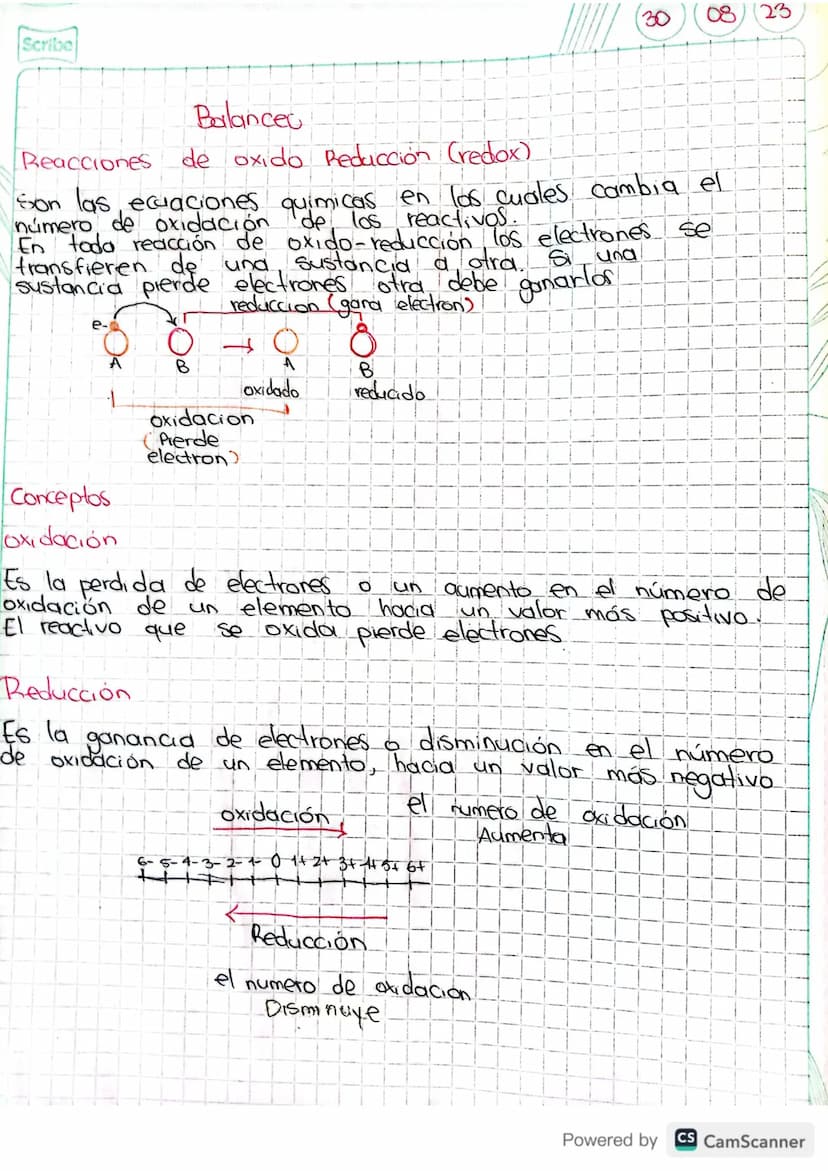 30 08 23
Scribe
Balanceo
Reacciones de oxido Reducción (redox)
Son las ecuaciones quimicas en las cuales cambia el
número de oxidación de los reactivos.
En toda reacción de oxido-reducción los electrones se
transfieren de una sustancia a otra. Si una
sustancia pierde electrones otra debe ganarlos
reduccion (gana electron)
e-
A B → A B
oxidado reducido
oxidacion
(Pierde
electron)
Conceptos
oxidación
Es la perdida de electrones o un aumento en el número de
oxidación de un elemento hacia un valor más positivo.
El reactivo que se oxida pierde electrones
Reducción
Es la ganancia de electrones o disminución en el número
de oxidación de un elemento, hacia un valor más negativo
oxidación el numero de oxidación
Aumenta
6- 5- 4- 3- 2- 1- 0 1+ 2+ 3+ 4+ 5+ 6+
Reducción
el numero de oxidacion
Disminuye
Powered by CS CamScanner